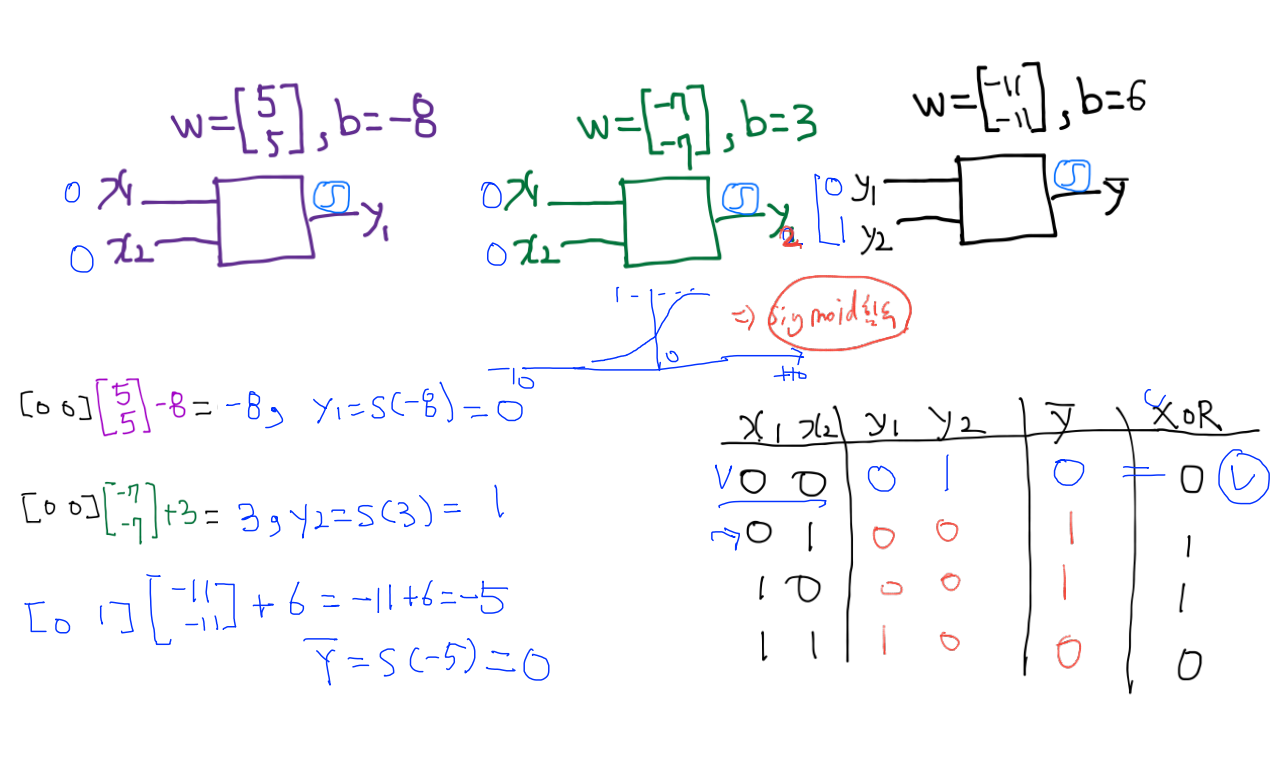 w=[5 5], b=-8
w=[-7 -7], b=3
w=[-11 -11], b=6
0 x1 S y1
0 x2
0 x1 S y2
0 x2
0 y1 S y̅
1 y2
1 0 -10 +10
⇒ sigmoid
[0 0][5 5]-8 = -8, y1=S(-8)=0
[0 0][-7 -7]+3 = 3, y2=S(3)= 1
[0 1][-11 -11]+6=-11+6=-5
y̅=S(-5)=0
x1 x2 y1 y2 y̅ XOR
V 0 0 0 1 0 = 0 V
→ 0 1 0 0 1 1
1 0 0 0 1 1
1 1 1 0 0 0